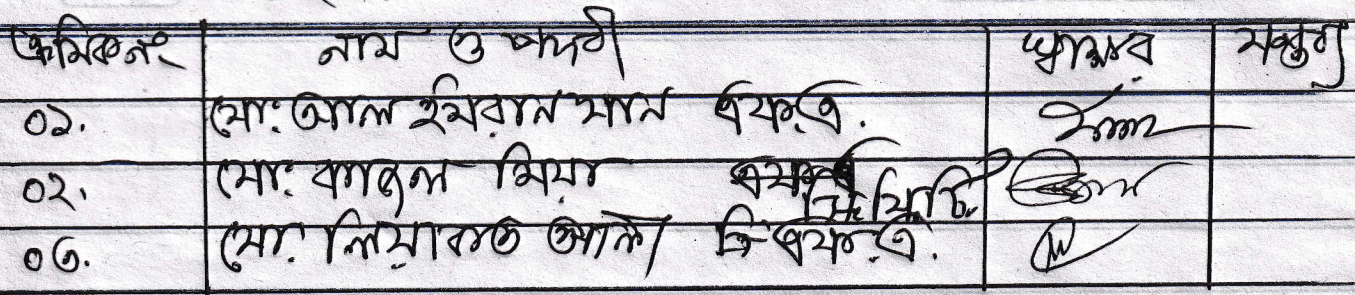 ক্রমিক নং নাম ও পদবী স্বাক্ষর মন্তব্য
০১. মো: আল ইমরান খান এফ.এ.
০২. মো: কাজল মিয়া সি.ফি.টি.
০৩. মো: লিয়াকত আলী ভি এফ.এ.